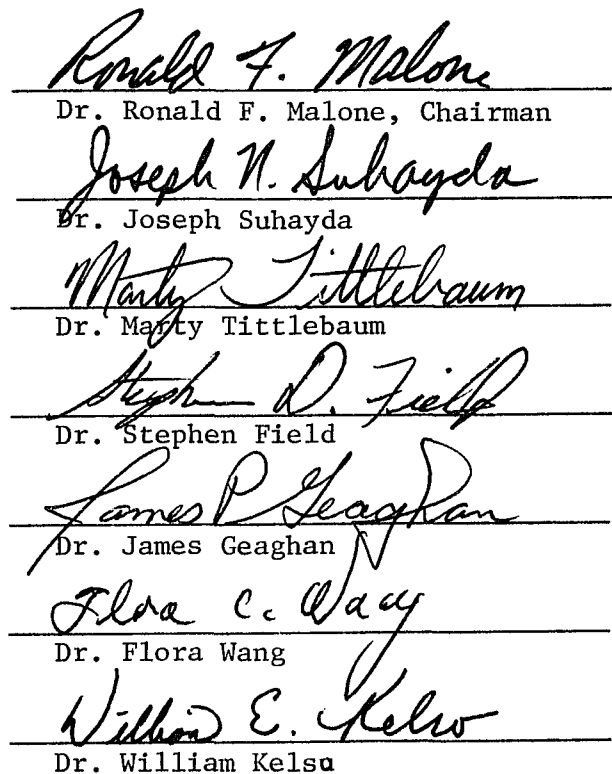 Ronald F. Malone
Dr. Ronald F. Malone, Chairman
Joseph N. Suhayda
Dr. Joseph Suhayda
Marty Tittlebaum
Dr. Marty Tittlebaum
Stephen D. Field
Dr. Stephen Field
James P Geaghan
Dr. James Geaghan
Flora C. Wang
Dr. Flora Wang
William E. Kelso
Dr. William Kelsa